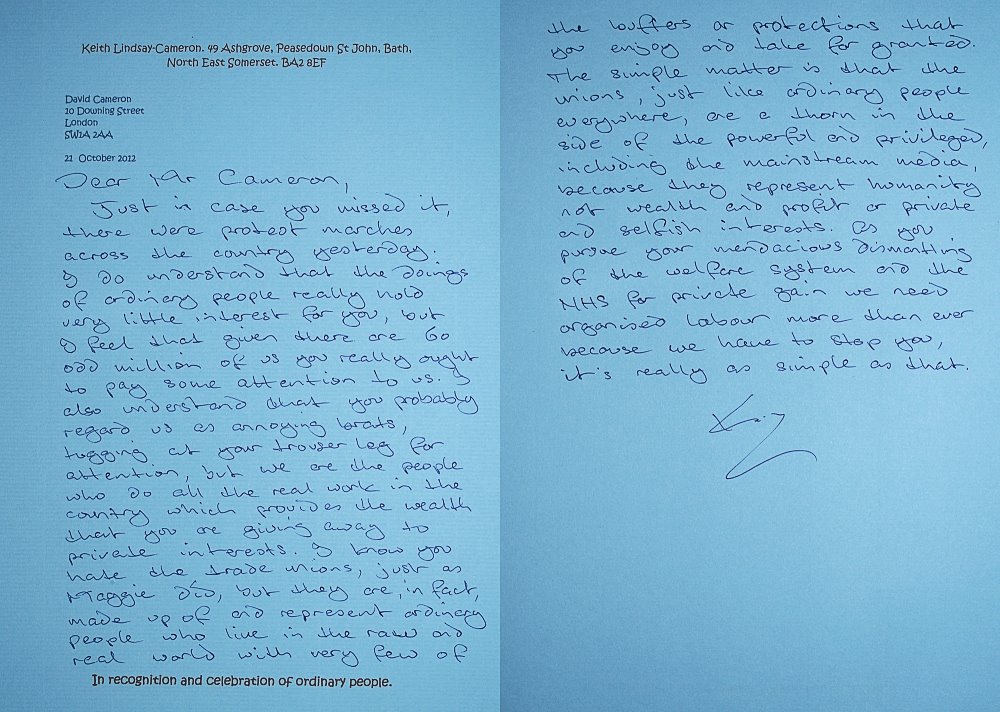 Keith Lindsay-Cameron. 49 Ashgrove, Peasedown St John, Bath,
North East Somerset. BA2 8EF
David Cameron
10 Downing Street
London
SW1A 2AA
21 October 2012
Dear Mr Cameron,
Just in case you missed it,
there were protest marches
across the country yesterday.
I do understand that the doings
of ordinary people really hold
very little interest for you, but
I feel that given there are 60
odd million of us you really ought
to pay some attention to us. I
also understand that you probably
regard us as annoying brats,
tugging at your trouser leg for
attention, but we are the people
who do all the real work in the
country which provides the wealth
that you are giving away to
private interests. I know you
hate the trade unions, just as
Maggie did, but they are, in fact,
made up of and represent ordinary
people who live in the raw and
real world with very few of
In recognition and celebration of ordinary people.
the buffers or protections that
you enjoy and take for granted.
The simple matter is that the
unions, just like ordinary people
everywhere, are a thorn in the
side of the powerful and privileged,
including the mainstream media,
because they represent humanity
not wealth and profit or private
and selfish interests. As you
pursue your mendacious dismantling
of the welfare system and the
NHS for private gain we need
organised labour more than ever
because we have to stop you,
it's really as simple as that.